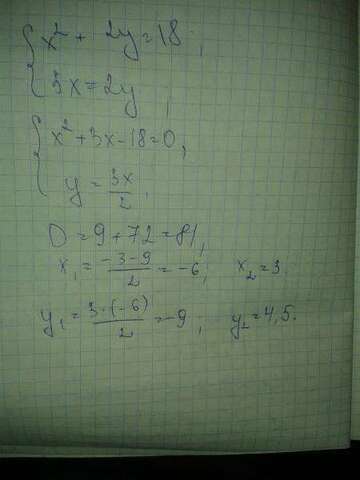 { x² + 2y = 18,
3x = 2y,
{ x² + 3x - 18 = 0,
y = 3x/2,
D = 9 + 72 = 81,
x₁ = (-3-9)/2 = -6, x₂ = 3
y₁ = 3·(-6)/2 = -9, y₂ = 4,5.